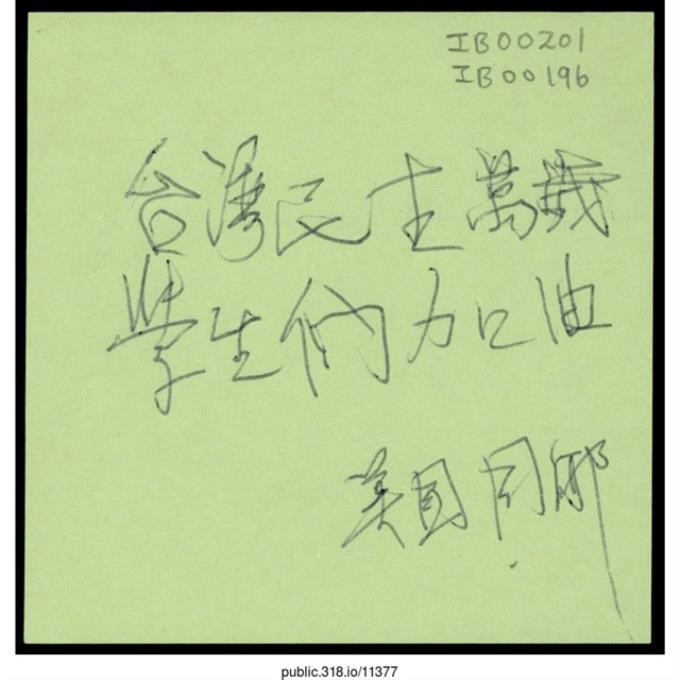 IB00201
IB00196
台灣民主萬歲
學生們加油
美國同鄉
public.318.io/11377